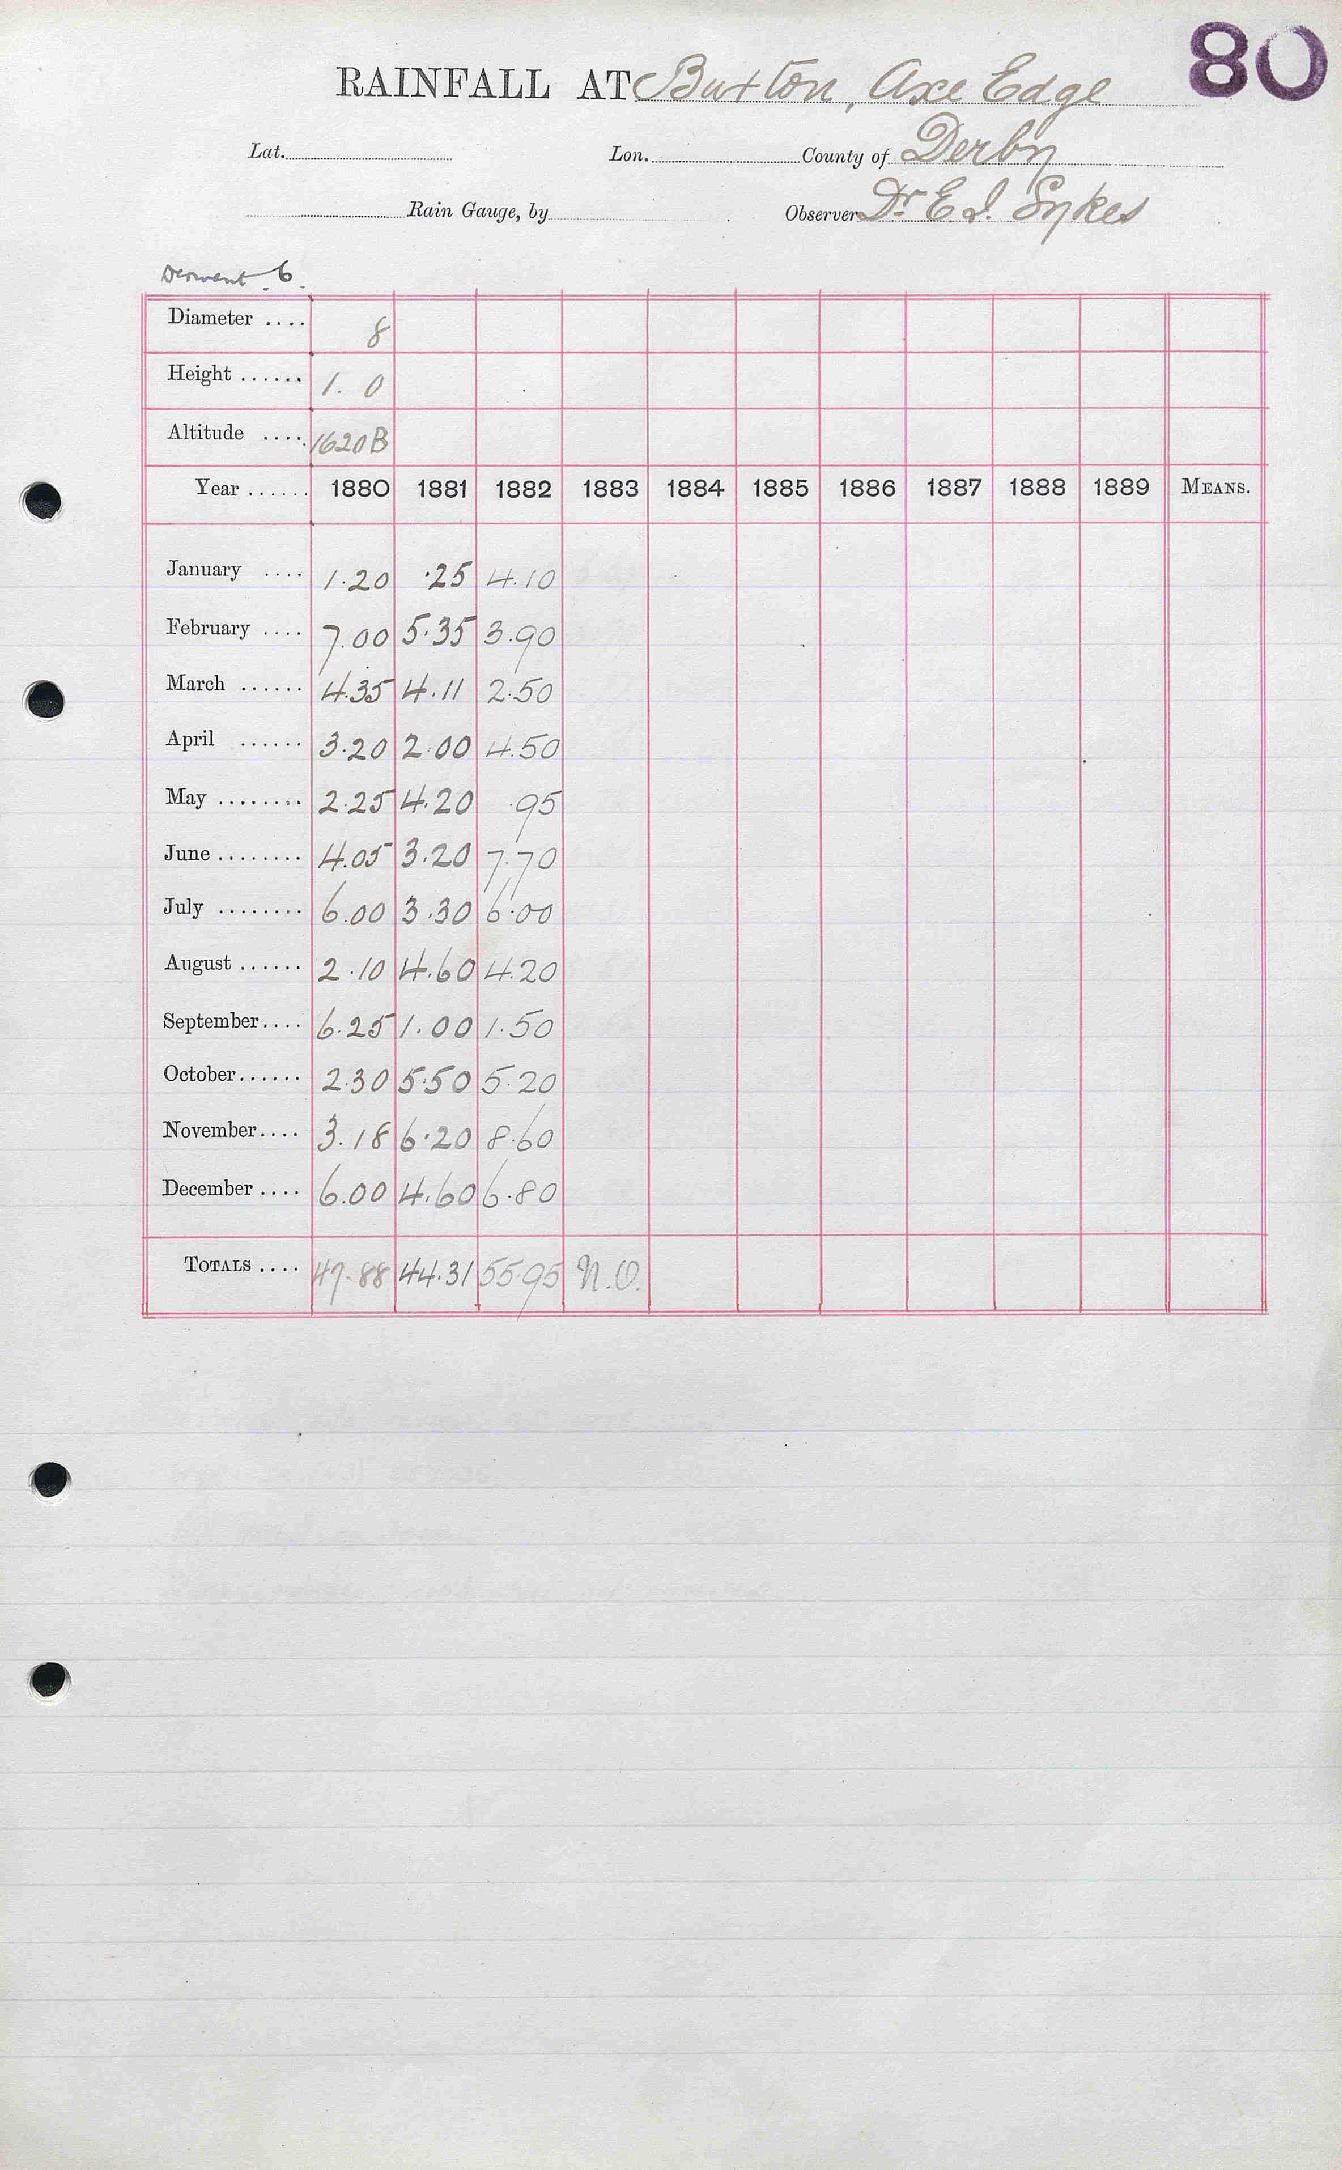 80
RAINFALL AT Buxton, Axe Edge
Lat. Lon. County of Derby
Rain Gauge, by Observer Dr. E. J. Sykes
Derwent 6.
Diameter .... 8
Height ...... 1. 0
Altitude .... 1620 B
Year ...... 1880 1881 1882 1883 1884 1885 1886 1887 1888 1889 MEANS.
January .... 1.20 .25 4.10
February .... 7.00 5.35 3.90
March ...... 4.35 4.11 2.50
April ...... 3.20 2.00 4.50
May ........ 2.25 4.20 .95
June ........ 4.05 3.20 7.70
July ........ 6.00 3.30 6.00
August ...... 2.10 4.60 4.20
September.... 6.25 1.00 1.50
October...... 2.30 5.50 5.20
November.... 3.18 6.20 8.60
December .... 6.00 4.60 6.80
TOTALS .... 47.88 44.31 55.95 N.O.